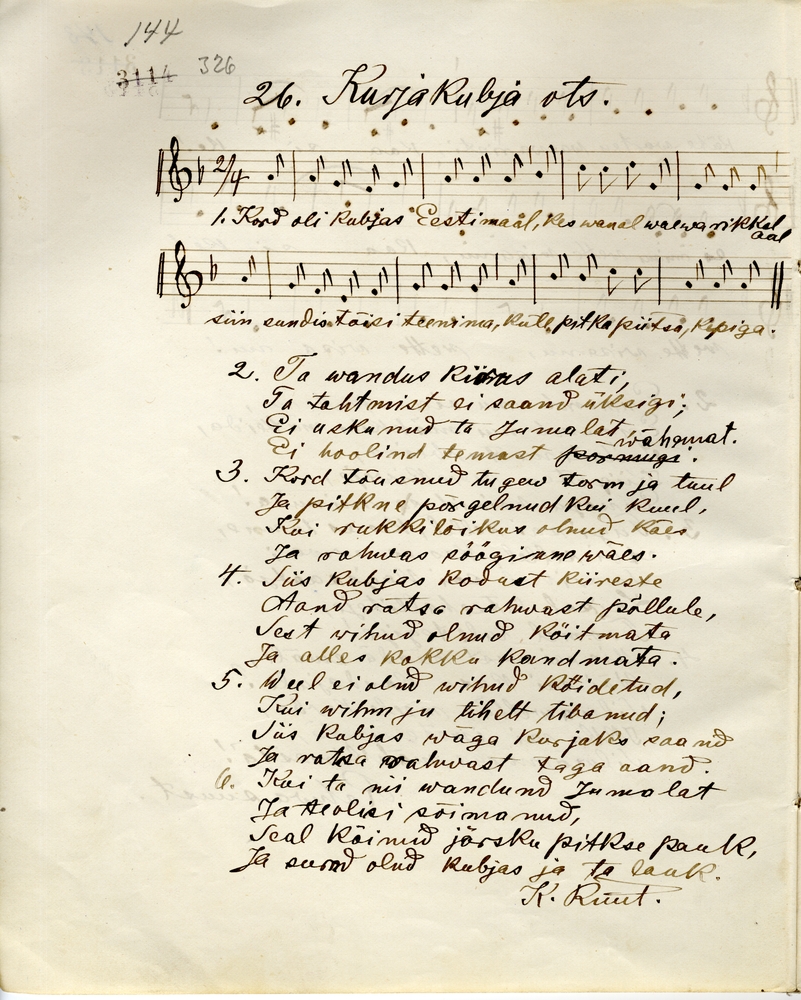 144
3114 326
26. Kurjakubja ots.
2/4
1. Kord oli kubjas Eestimaal, kes wanal waewarikkal
aal
siin sundis tööisi teenima, külle pitka piitsa, kepiga.
2. Ta wandus kiirus alati,
Ta tahtmist ei saand üksigi;
Ei uskunud ta Jumalat
Ei hoolind temast pörmugi wähemat.
3. Kord tõusnud tugew torm ja tuul
Ja pitkne põrgelnud kui kuul,
Kui rukkilõikus olnud käes
Ja rahwas sööginne wäes.
4. Siis kubjas kodust kiireste
Aand ratsa rahwast põllule,
Sest wihud olnud köitmata
Ja alles kokku kandmata.
5. Weel ei olnd wihud köidetud,
Kui wihm ju tihelt tibanud;
Siis kubjas wäga kurjaks saand
Ja ratsa rahwast taga aand.
6. Kui ta nii wandund Jumalat
Ja teolisi sõimanud,
Seal käinud järsku pitkse pauk,
Ja surnd olnd kubjas ja ta lauk.
K. Ruut.